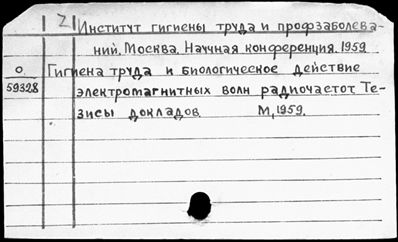 Z Институт гигиены труда и профзаболева-
ний. Москва. Научная конференция. 1959
О Гигиена труда и биологическое действие
59328 электромагнитных волн радиочастот. Те-
зисы докладов. М., 1959.